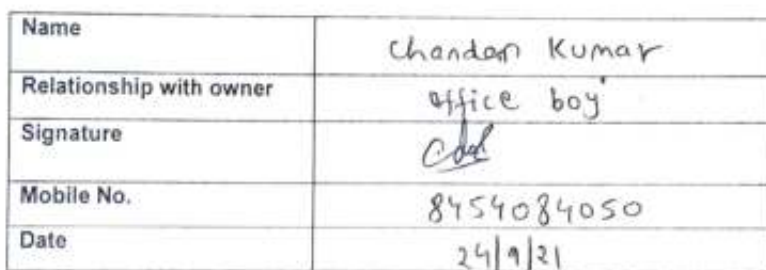 Name Chandan Kumar
Relationship with owner office boy
Signature
Mobile No. 8454084050
Date 24/9/21